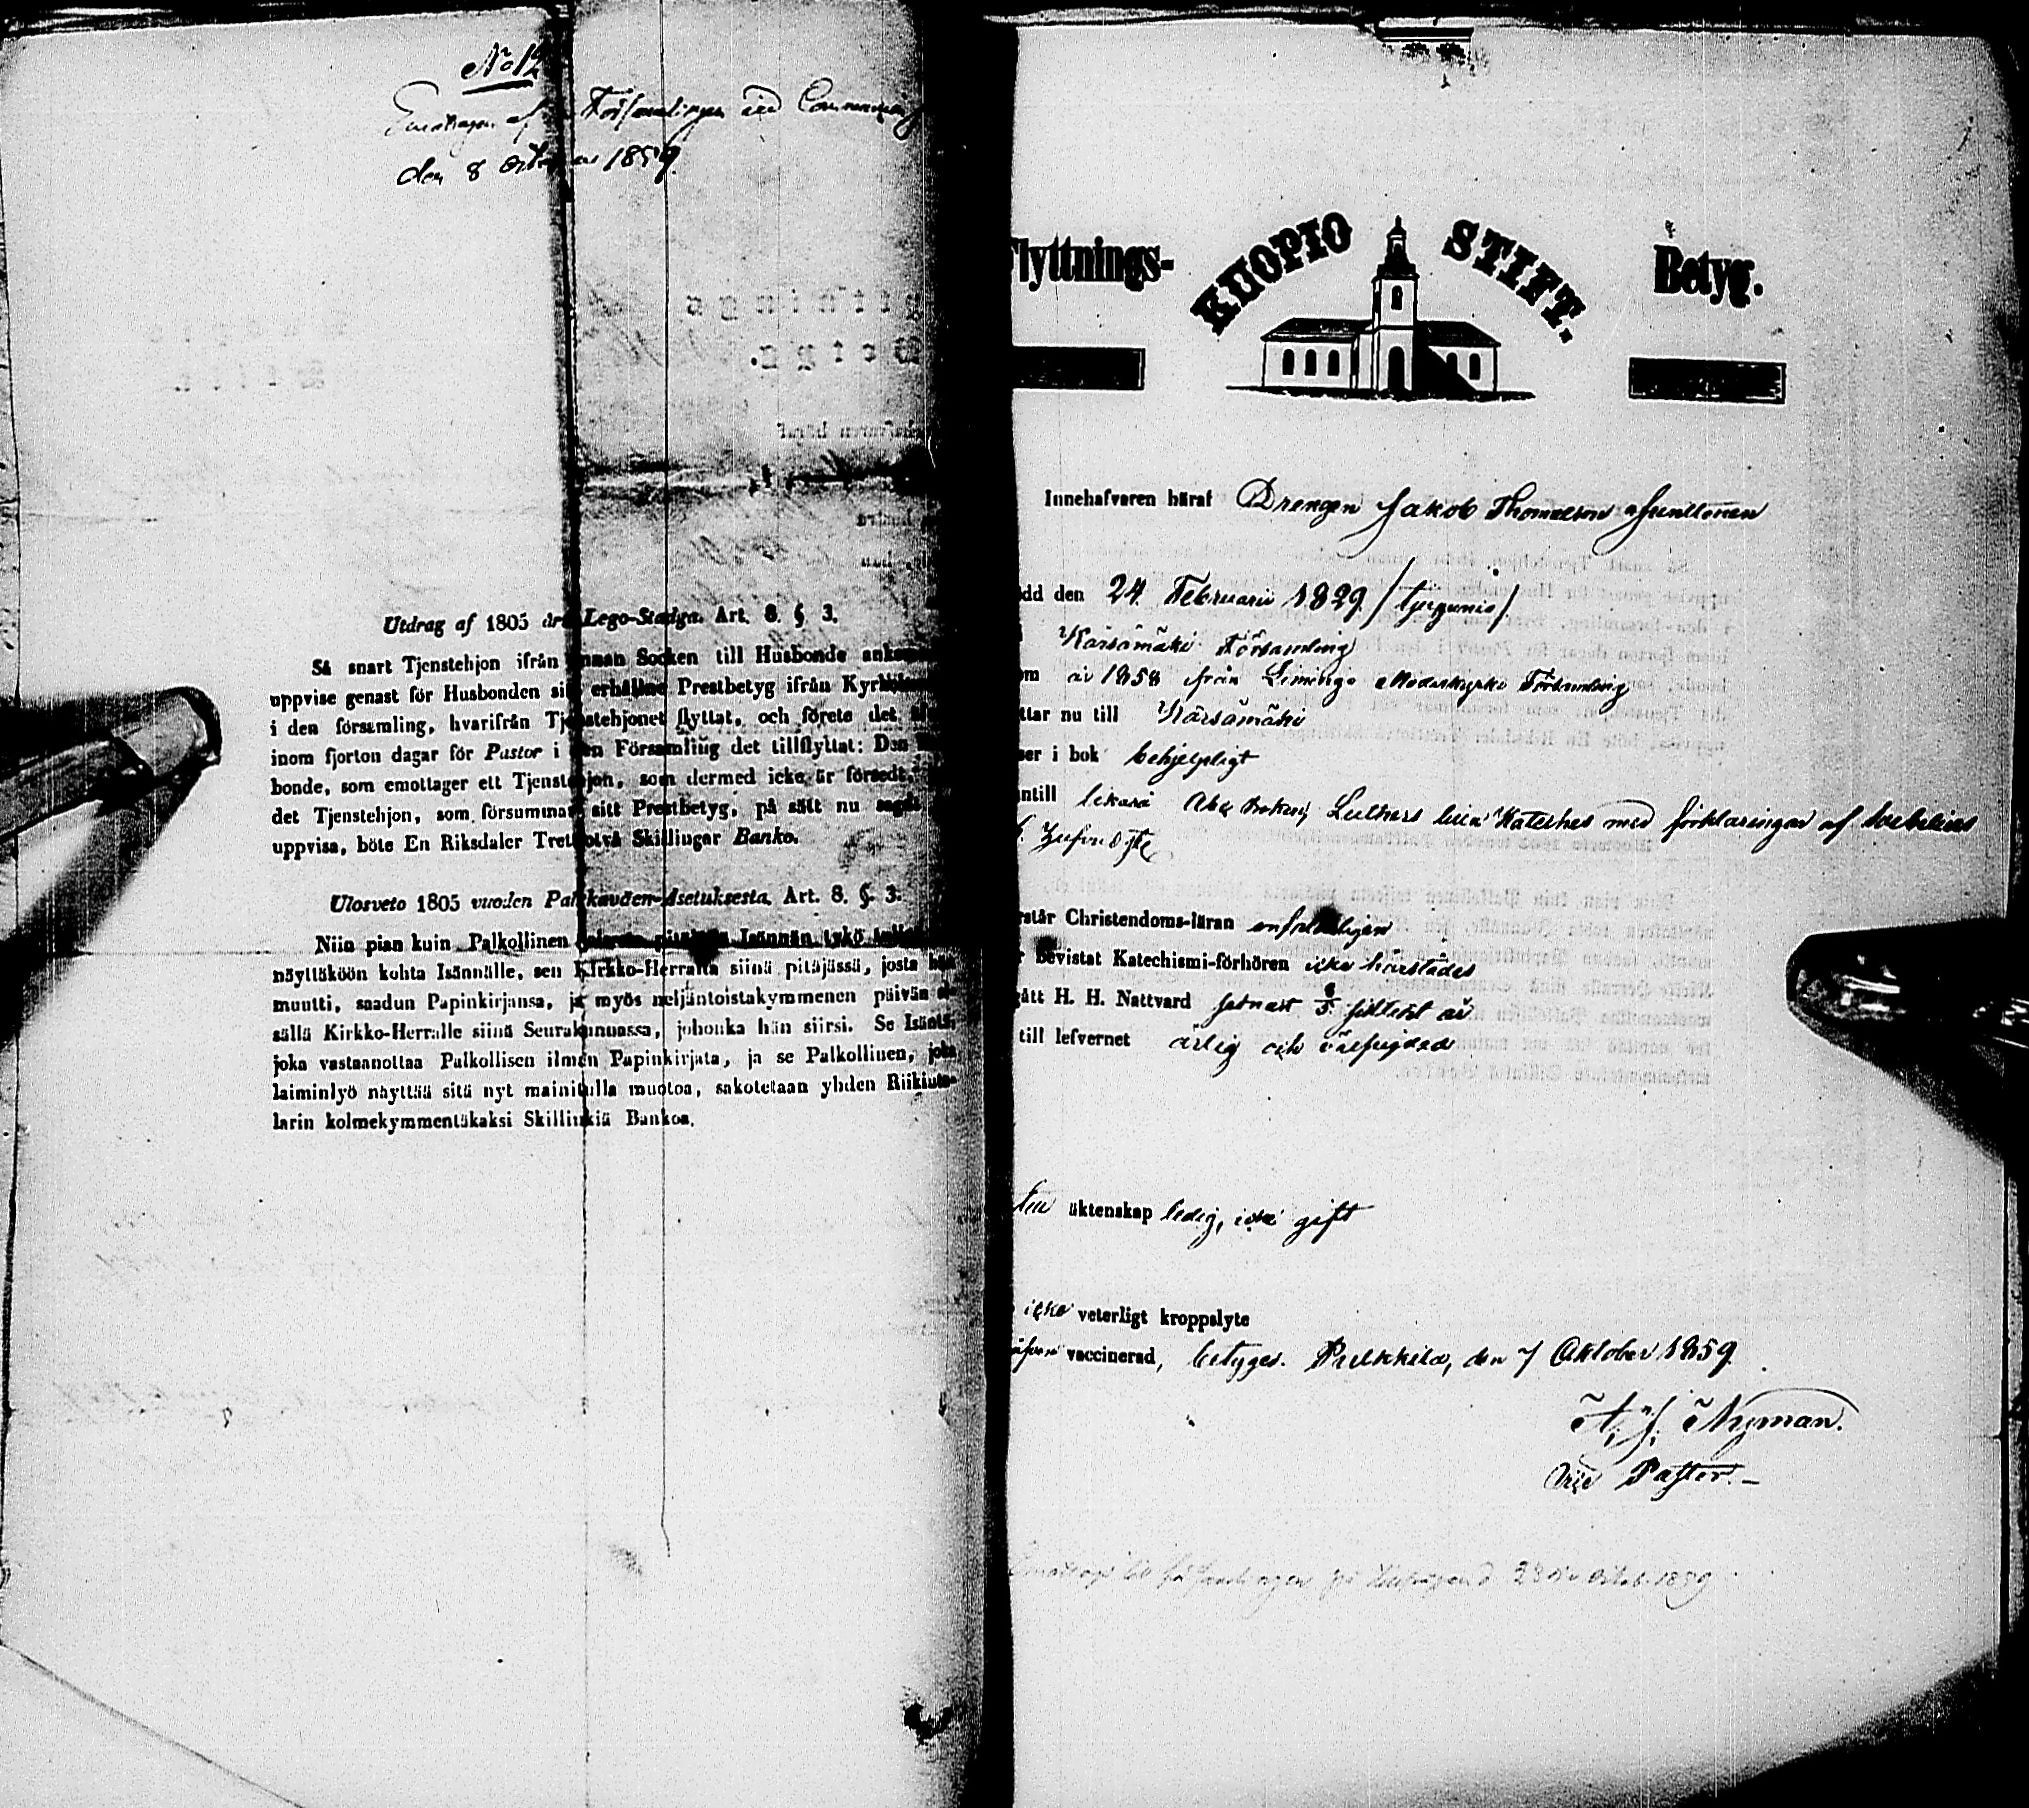 No 12
af Församlingen
den 8 1859.
Utdrag af 1805 års Lego-Stadga. Art. 8. § 3.
Så snart Tjenstehjon ifrån annan Socken till Husbonde
uppvise genast för Husbonden sitt erhållne Prestbetyg ifrån
i den församling, hvarifrån Tjenstehjonet flyttat, och förete det
inom fjorton dagar för Pastor i den Församling det tillflyttat: Den
bonde, som emottager ett Tjenstehjon, som dermed icke är försedt,
det Tjenstehjon, som försummat sitt Prestbetyg, på sätt nu sagdt
uppvisa, böte En Riksdaler Trettiotvå Skillingar Banko.
Ulosveto 1805 vuoden Palkkaväen-Asetuksesta. Art. 8. §. 3.
Niin pian kuin Palkollinen Isännän tykö
näyttäköön kohta Isännälle, sen Kirkko-Herralta siinä pitäjässä, josta hän
muutti, saadun Papinkirjansa, ja myös neljäntoistakymmenen päivän
sällä Kirkko-Herralle siinä Seurakunnassa, johonka hän siirsi. Se Isäntä,
joka vastaanottaa Palkollisen ilman Papinkirjata, ja se Palkollinen, joka
laiminlyö näyttää sitä nyt mainitulla muotoa, sakotetaan yhden Riikinta-
larin kolmekymmentäkaksi Skillinkiä Bankoa.
Flyttnings- KUOPIO STIFT. Betyg.
Innehafvaren häraf Drengen Jakob Thomasson
dd den 24 Februarii 1829
Kärsämäki Församling
om år 1858 från Limingo Moderkyrko Församling
ttar nu till Kärsämäki
ser i bok behjelpligt
ntill likaså Abc boken, Luthers lilla Kateches med förklaringar af Svebelius
rstår Christendoms-läran enfaldeligen
bevistat Katechismi-förhören icke härstädes
gått H. H. Nattvard senast sistledit år
till lefvernet ärlig och välfrejdad
äktenskap ledig, icke gift
icke veterligt kroppslyte
vaccinerad, betyges. Pulkkila, den 7 Oktober 1859.
A. J. Nyman.
Vice Pastor.
1859